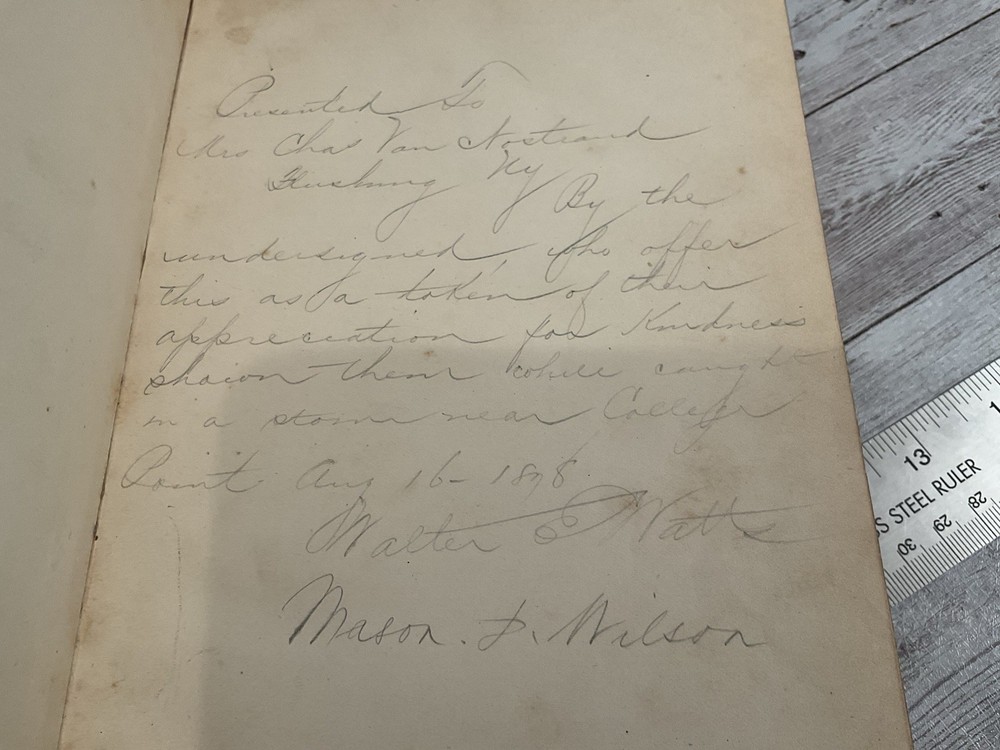 Presented To
Mrs Chas Van Nostrand
Flushing Ny
By the
undersigned, who offer
this as a token of their
appreciation for Kindness
shown them while caught
in a storm near College
Point Aug 16-1898.
Walter E Watts
Mason. D. Wilson
13
S STEEL RULER
30 29 28